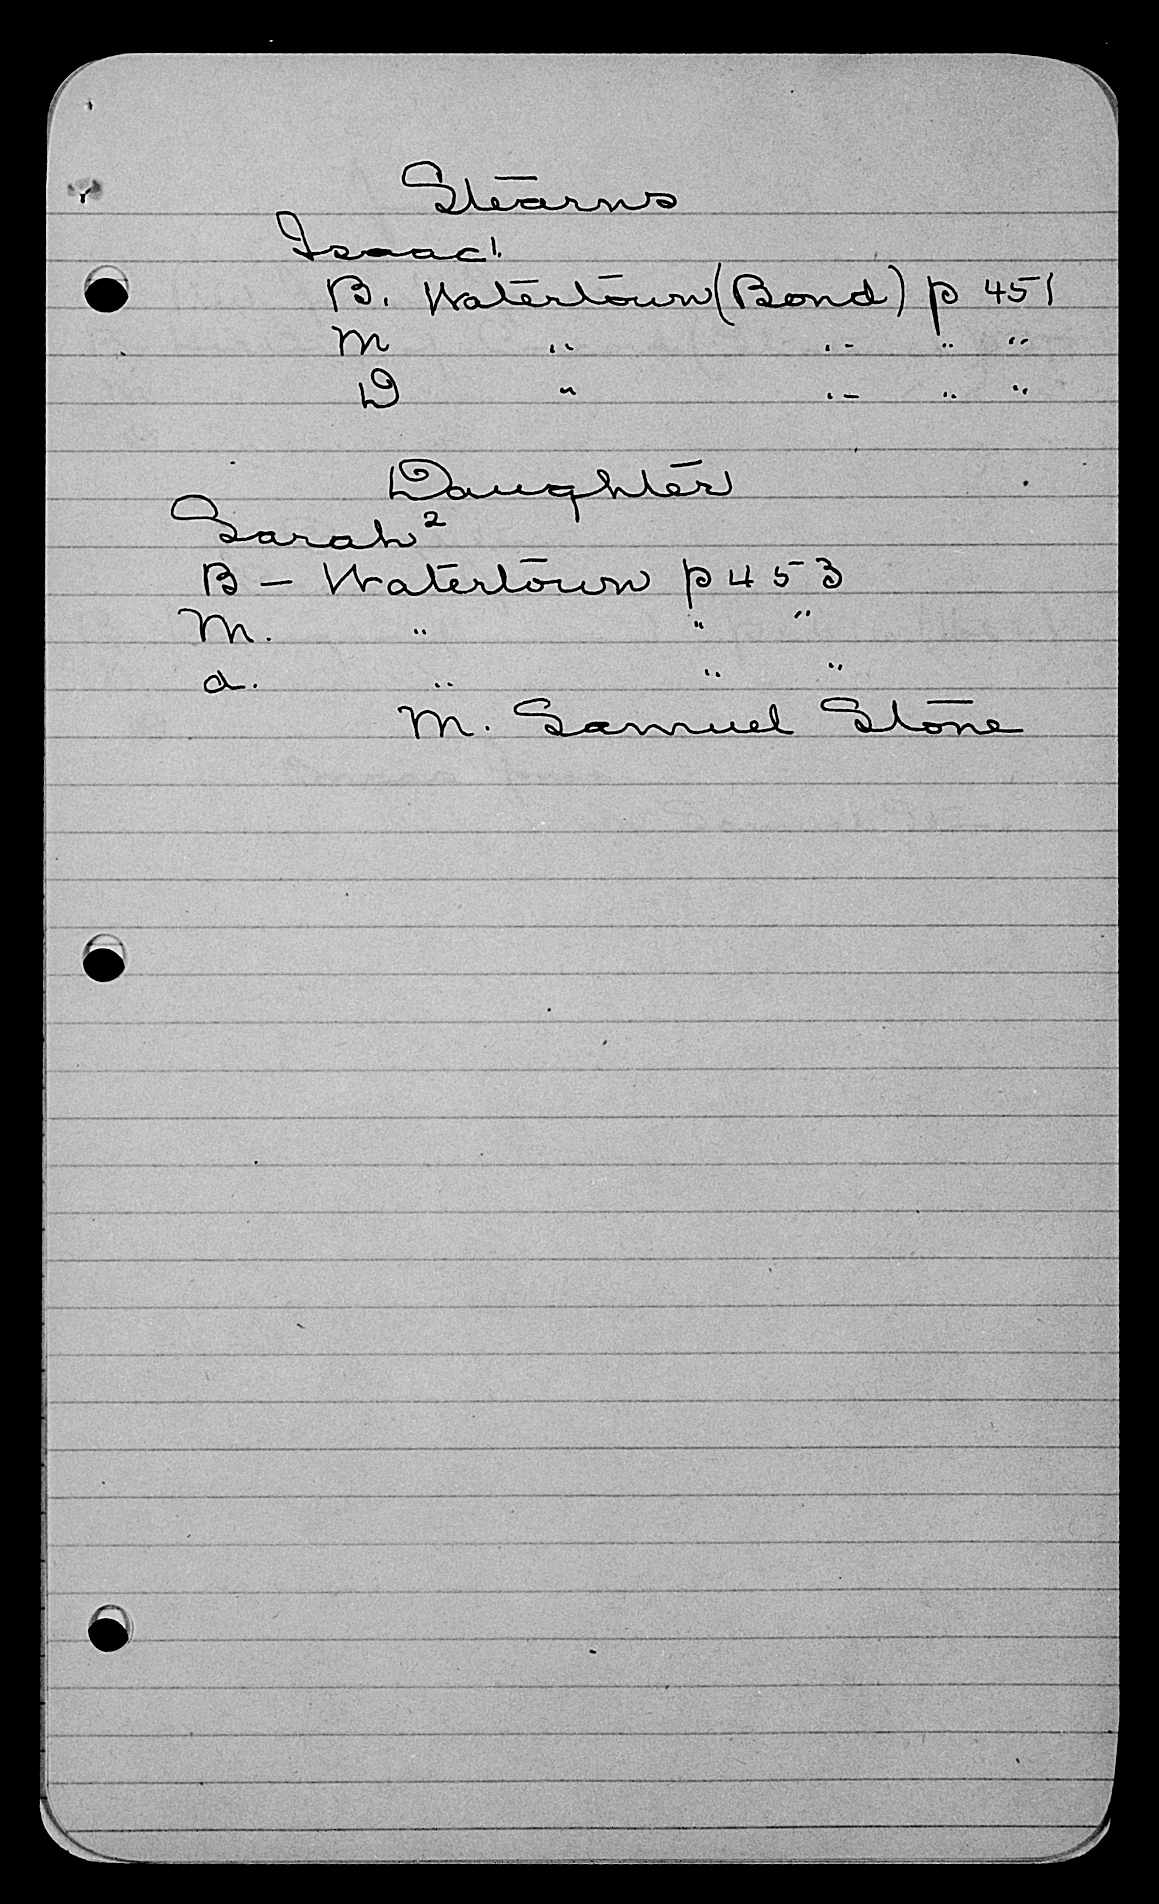 Stearns
Isaac¹.
B. Watertown (Bond) p 451
M " " " "
D " " " "
Daughter
Sarah²
B - Watertown p 453
M. " " "
d. " " "
M. Samuel Stone